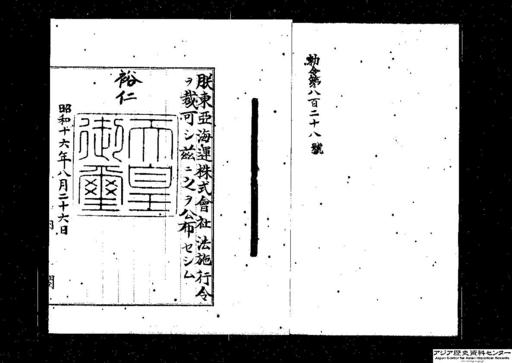 勅令第八百二十八號
朕東亞海運株式會社法施行令
ヲ裁可シ茲ニ之ヲ公布セシム
裕仁
天皇
御璽
昭和十六年八月二十六日
アジア歴史資料センター
Japan Center for Asian Historical Records